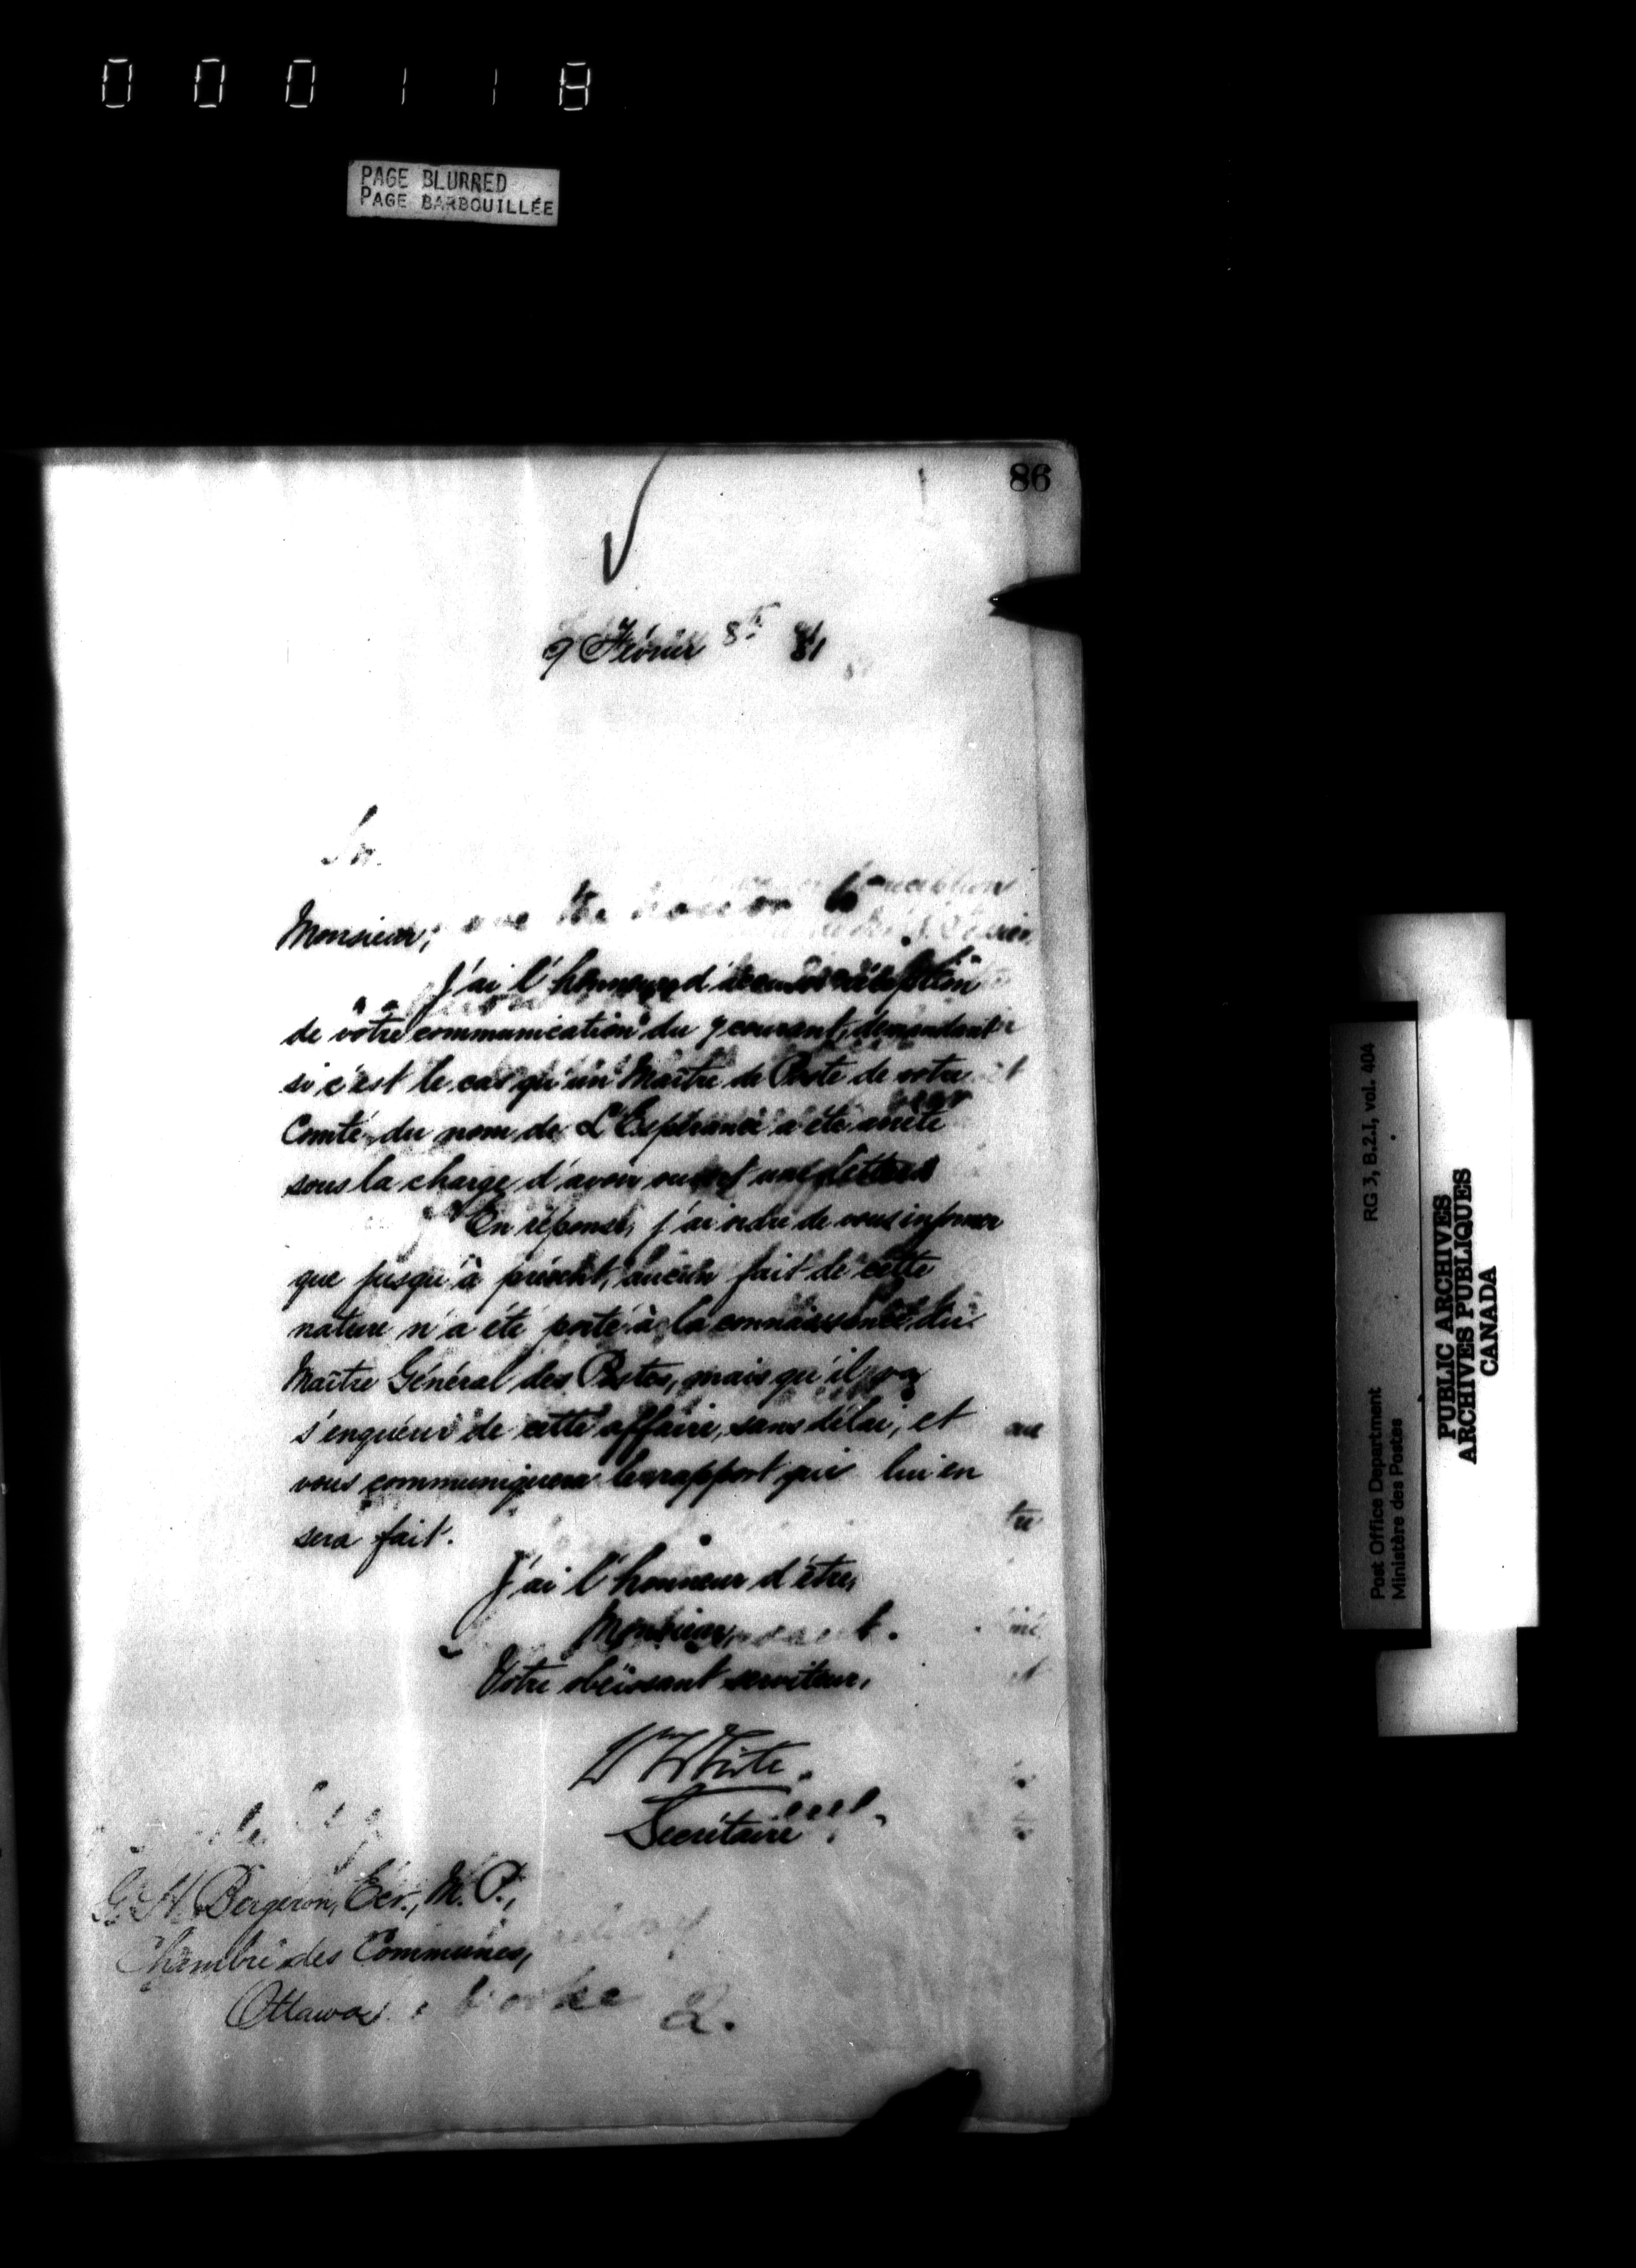 000118
PAGE BLURRED
PAGE BARBOUILLÉE
86
9 Février 81
Monsieur,
J'ai l'honneur d'accuser réception
de votre communication du 7 courant, demandant
si c'est le cas qu'un Maître de Poste de votre
Comté, du nom de L'Espérance a été arrêté
sous la charge d'avoir ouvert une lettre.
En réponse, j'ai ordre de vous informer
que jusqu'à présent, aucun fait de cette
nature n'a été porté à la connaissance du
Maître Général des Postes, mais qu'il va
s'enquérir de cette affaire, sans délai, et
vous communiquera le rapport qui lui en
sera fait.
J'ai l'honneur d'être,
Monsieur,
Votre obéissant serviteur,
Wm White.
Secrétaire
G. H. Bergeron, Ecr., M. P.,
Chambre des Communes,
Ottawa.
Post Office Department RG 3, B.2.1, vol. 404
Ministère des Postes
PUBLIC ARCHIVES
ARCHIVES PUBLIQUES
CANADA